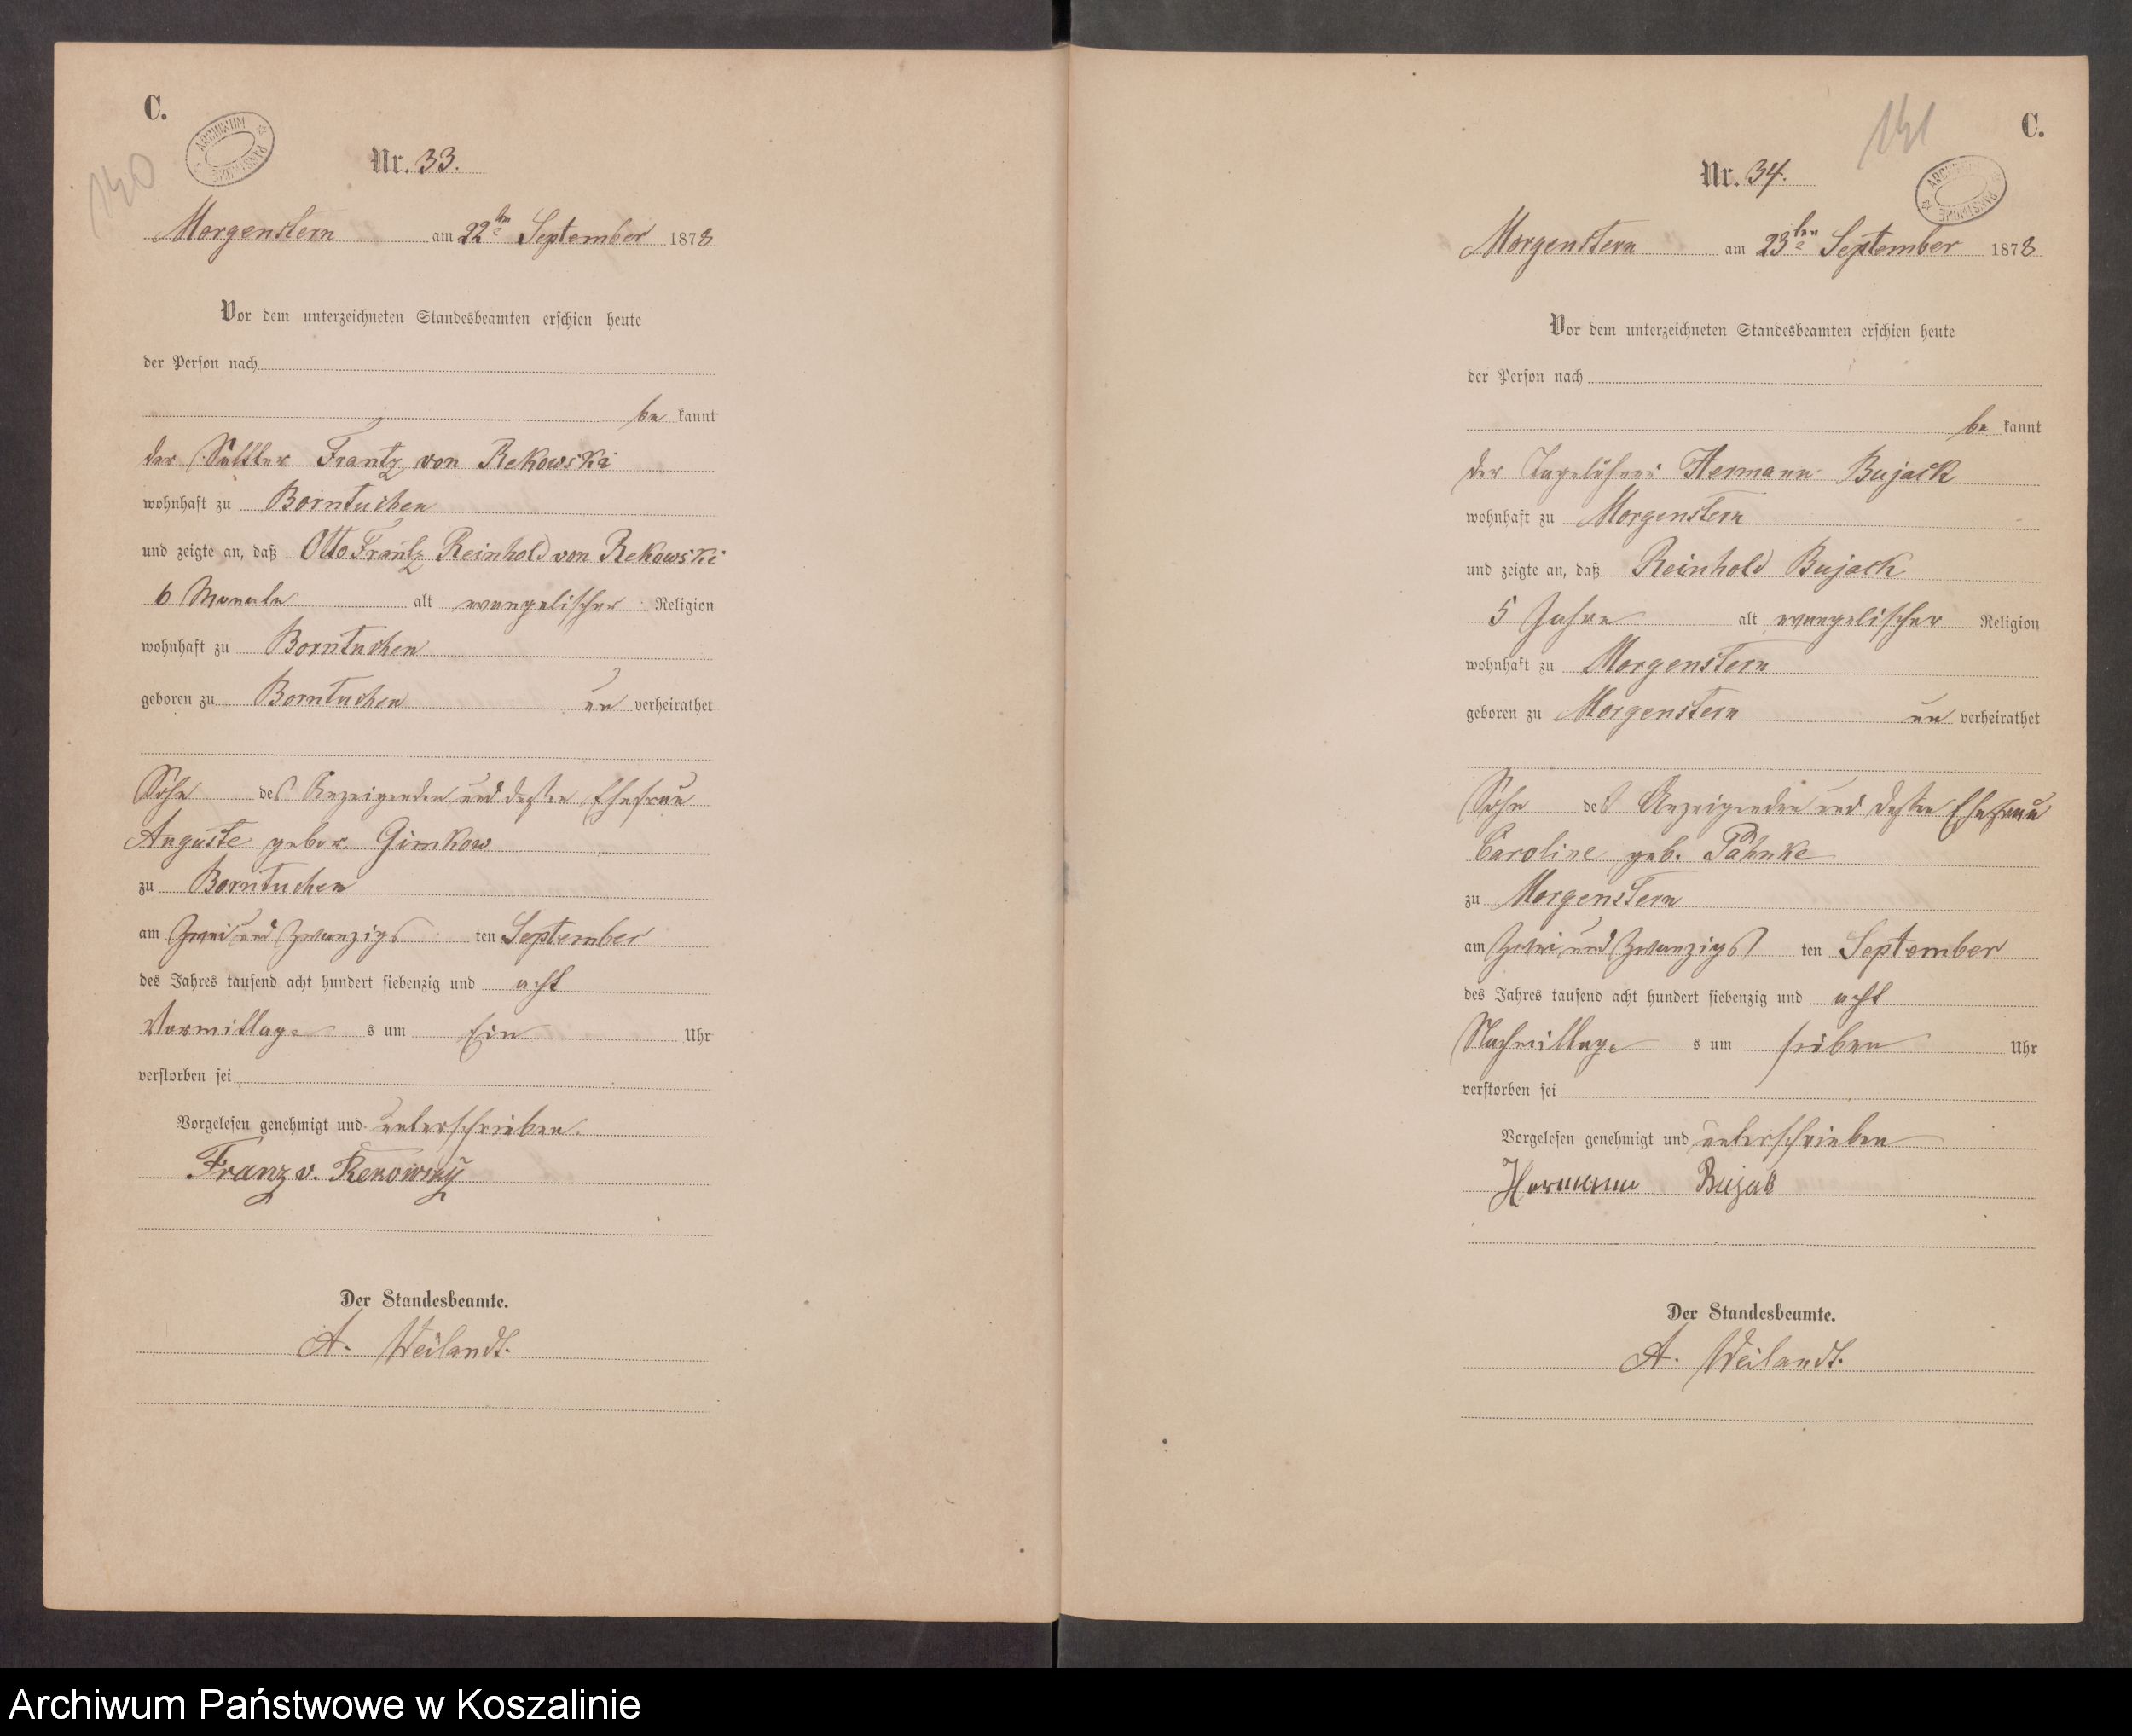 C.
140
ARCHIWUM PAŃSTWOWE
Nr. 33.
Morgenstern am 22ten September 1878
Vor dem unterzeichneten Standesbeamten erschien heute
der Person nach
be kannt
der Sattler Frantz von Rekowski
wohnhaft zu Borntuchen
und zeigte an, daß Otto Frantz Reinhold von Rekowski
6 Monate alt evangelischer Religion
wohnhaft zu Borntuchen
geboren zu Borntuchen un verheirathet
Sohn des Anzeigenden und dessen Ehefrau
Auguste gebor. Gimkow
zu Borntuchen
am zwei und zwanzigs ten September
des Jahres tausend acht hundert siebenzig und acht
Vormittage s um Ein Uhr
verstorben sei
Vorgelesen genehmigt und unterschrieben.
Franz v. Rekowsky
Der Standesbeamte.
A. Weilandt.
141
C.
ARCHIWUM PAŃSTWOWE
Nr. 34.
Morgenstern am 23ten September 1878
Vor dem unterzeichneten Standesbeamten erschien heute
der Person nach
be kannt
der Tagelöhner Hermann Bujack
wohnhaft zu Morgenstern
und zeigte an, daß Reinhold Bujack
5 Jahre alt evangelischer Religion
wohnhaft zu Morgenstern
geboren zu Morgenstern un verheirathet
Sohn des Anzeigenden und dessen Ehefrau
Caroline geb. Pahnke
zu Morgenstern
am zwei und zwanzigs ten September
des Jahres tausend acht hundert siebenzig und acht
Nachmittage s um sieben Uhr
verstorben sei
Vorgelesen genehmigt und unterschrieben
Hermann Bujak
Der Standesbeamte.
A. Weilandt.
Archiwum Państwowe w Koszalinie